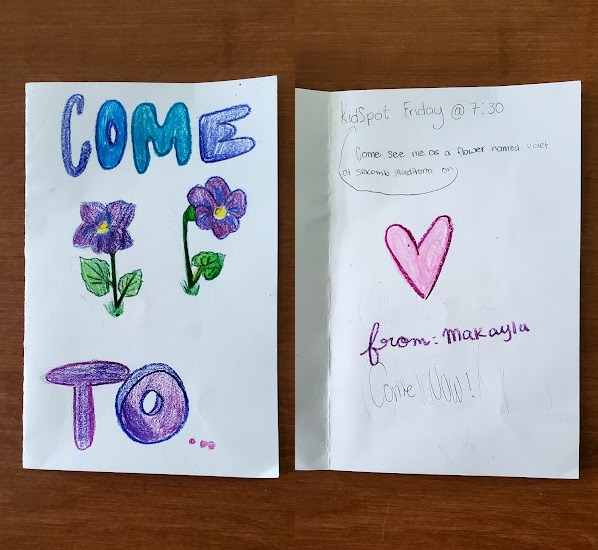 COME
TO...
kidSpot Friday @ 7:30
Come see me as a flower named violet
at Slocomb Auditorm on
from: Makayla
Come